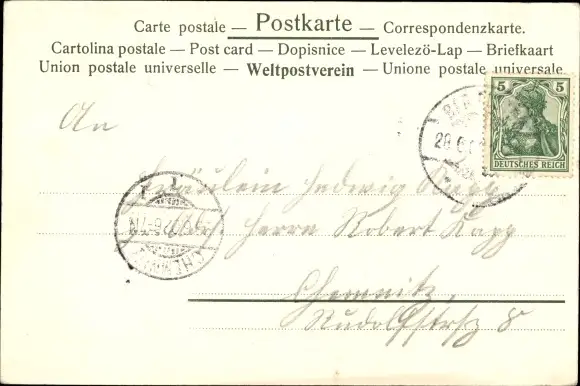 Carte postale — Postkarte — Correspondenzkarte.
Cartolina postale — Post card — Dopisnice — Levelezö-Lap — Briefkaart
Union postale universelle — Weltpostverein — Unione postale universale
5 5
DEUTSCHES REICH
An
Fräulein Hedwig Rapp
Adr. Herrn Robert Rapp
Chemnitz,
Rudolfstr 8
CHEMNITZ